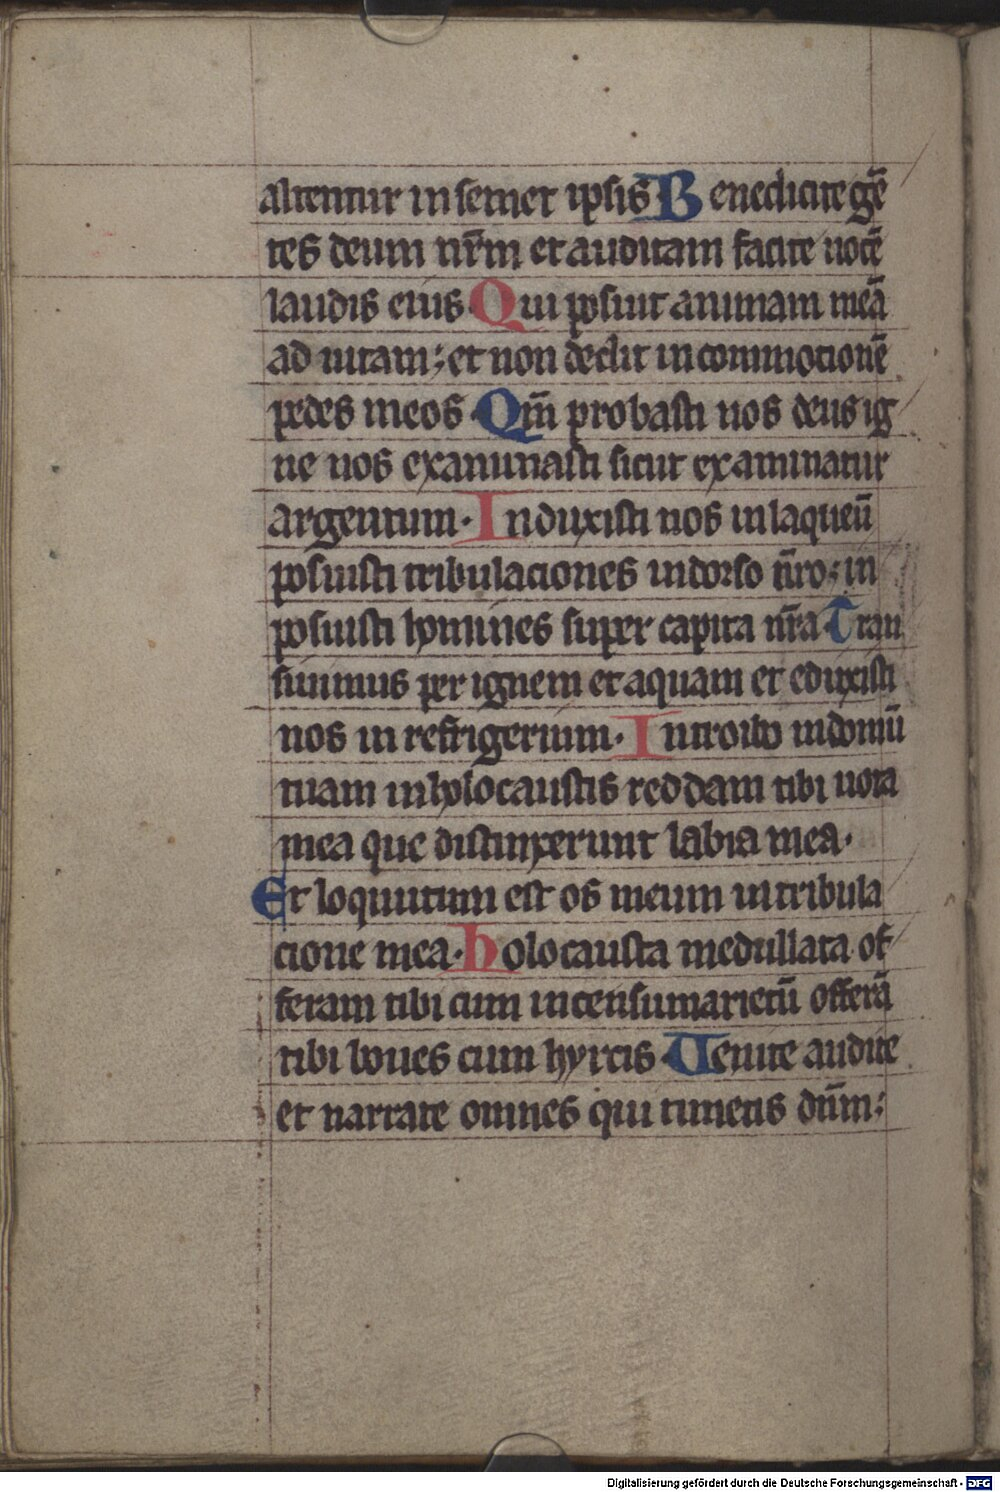 altentur in semet ipsis Benedicite gē
tes deum nr̄m et auditam facite uocē
laudis eius. Qui posuit animam meā
ad uitam; et non dedit in commotionē
pedes meos. Qm̄ probasti nos deus ig
ne nos examinasti sicut examinatur
argentum. Induxisti nos in laqueū
posuisti tribulaciones in dorso nr̄o; in
posuisti homines super capita nr̄a Tran
siuimus per ignem et aquam et eduxisti
nos in refrigerium. Introibo in domū
tuam in holocaustis reddam tibi uota
mea que distinxerunt labia mea.
Et loquutum est os meum in tribula
cione mea. Holocausta medullata of
feram tibi cum incensum arietū offerā
tibi boues cum hyrcis. Uenite audite
et narrare omnes qui timetis dn̄m;
Digitalisierung gefördert durch die Deutsche Forschungsgemeinschaft - DFG